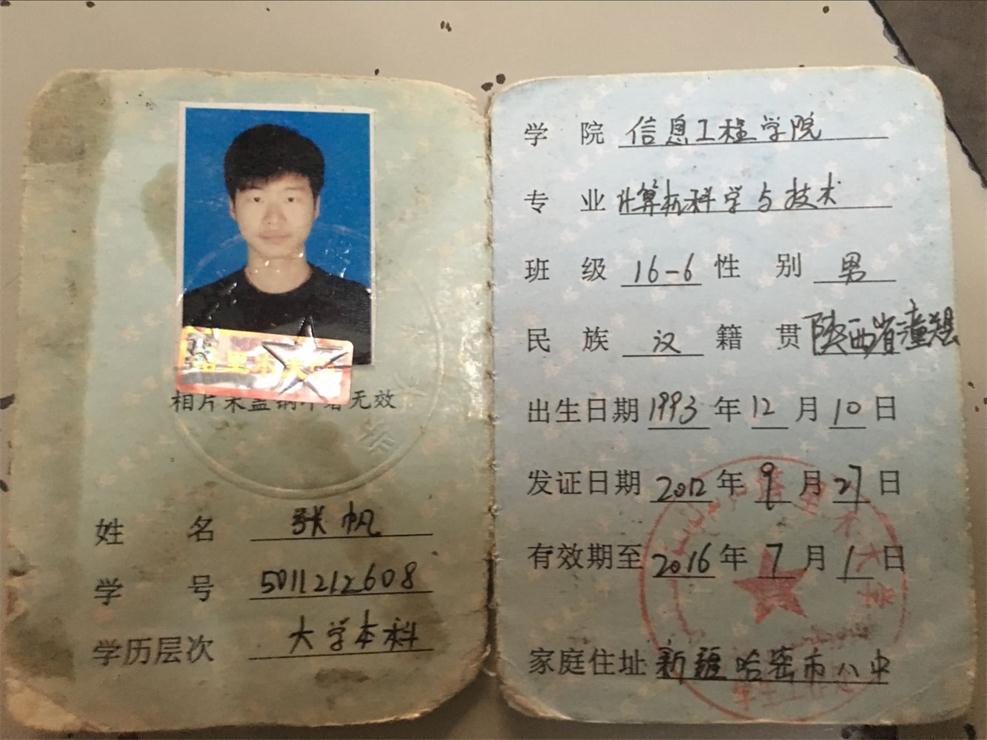 相片未盖钢印者无效
姓 名 张帆
学 号 5011212608
学历层次 大学本科
学 院 信息工程学院
专 业 计算机科学与技术
班 级 16-6 性 别 男
民 族 汉 籍 贯 陕西省潼关县
出生日期 1993 年 12 月 10 日
发证日期 2012 年 9 月 27 日
有效期至 2016 年 7 月 1 日
家庭住址 新疆哈密市八中
学生工作处